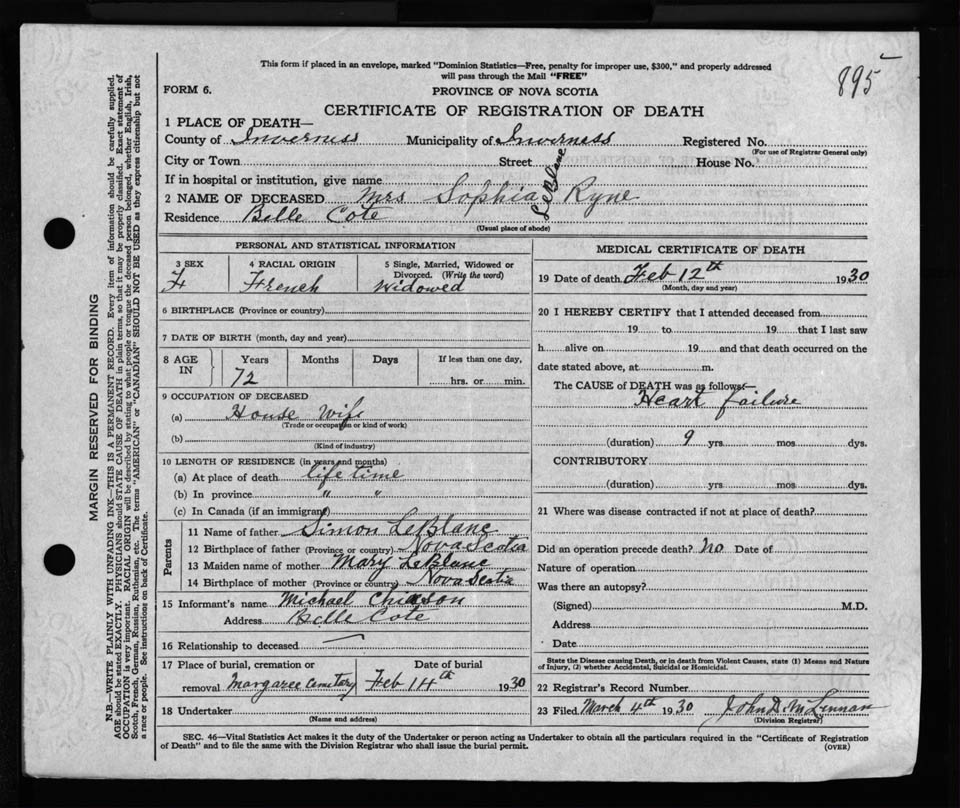 895
This form if placed in an envelope, marked "Dominion Statistics—Free, penalty for improper use, $300," and properly addressed
will pass through the Mail "FREE"
FORM 6.
PROVINCE OF NOVA SCOTIA
CERTIFICATE OF REGISTRATION OF DEATH
1 PLACE OF DEATH—
County of Inverness Municipality of Inverness Registered No.
(For use of Registrar General only)
City or Town Street House No.
If in hospital or institution, give name
2 NAME OF DECEASED Mrs Sophia LeBlanc Ryne
Residence Belle Cote
(Usual place of abode)
PERSONAL AND STATISTICAL INFORMATION
3 SEX 4 RACIAL ORIGIN 5 Single, Married, Widowed or
Divorced. (Write the word)
F French Widowed
6 BIRTHPLACE (Province or country)
7 DATE OF BIRTH (month, day and year)
8 AGE IN Years Months Days If less than one day,
72 hrs. or min.
9 OCCUPATION OF DECEASED
(a) House Wife
(Trade or occupation or kind of work)
(b)
(Kind of industry)
10 LENGTH OF RESIDENCE (in years and months)
(a) At place of death life time
(b) In province " "
(c) In Canada (if an immigrant)
Parents
11 Name of father Simon LeBlanc
12 Birthplace of father (Province or country) Nova Scotia
13 Maiden name of mother Mary LeBlanc
14 Birthplace of mother (Province or country) Nova Scotia
15 Informant's name Michael Chiasson
Address Belle Cote
16 Relationship to deceased
17 Place of burial, cremation or Date of burial
removal Margaree Cemetary Feb 14th 1930
18 Undertaker
(Name and address)
MEDICAL CERTIFICATE OF DEATH
19 Date of death Feb 12th 1930
(Month, day and year)
20 I HEREBY CERTIFY that I attended deceased from
19 to 19 that I last saw
h alive on 19 and that death occurred on the
date stated above, at m.
The CAUSE of DEATH was as follows:—
Heart failure
(duration) 9 yrs. mos. dys.
CONTRIBUTORY
(duration) yrs. mos. dys.
21 Where was disease contracted if not at place of death?
Did an operation precede death? no Date of
Nature of operation
Was there an autopsy?
(Signed) M.D.
Address
Date
State the Disease causing Death, or in death from Violent Causes, state (1) Means and Nature
of Injury, (2) whether Accidental, Suicidal or Homicidal.
22 Registrar's Record Number
23 Filed March 4th 1930 John D. McLennan
(Division Registrar)
SEC. 46—Vital Statistics Act makes it the duty of the Undertaker or person acting as Undertaker to obtain all the particulars required in the "Certificate of Registration
of Death" and to file the same with the Division Registrar who shall issue the burial permit.
(OVER)
MARGIN RESERVED FOR BINDING
N.B.—WRITE PLAINLY WITH UNFADING INK—THIS IS A PERMANENT RECORD. Every item of information should be carefully supplied.
AGE should be stated EXACTLY. PHYSICIANS should STATE CAUSE OF DEATH in plain terms, so that it may be properly classified. Exact statement of
OCCUPATION is very important. RACIAL ORIGIN will be described by stating to what people or tongue the deceased person belonged, whether English, Irish,
Scotch, French, German, Russian, Ruthenian, etc. The terms "AMERICAN" or "CANADIAN" SHOULD NOT BE USED as they express citizenship but not
a race or people. See instructions on back of Certificate.